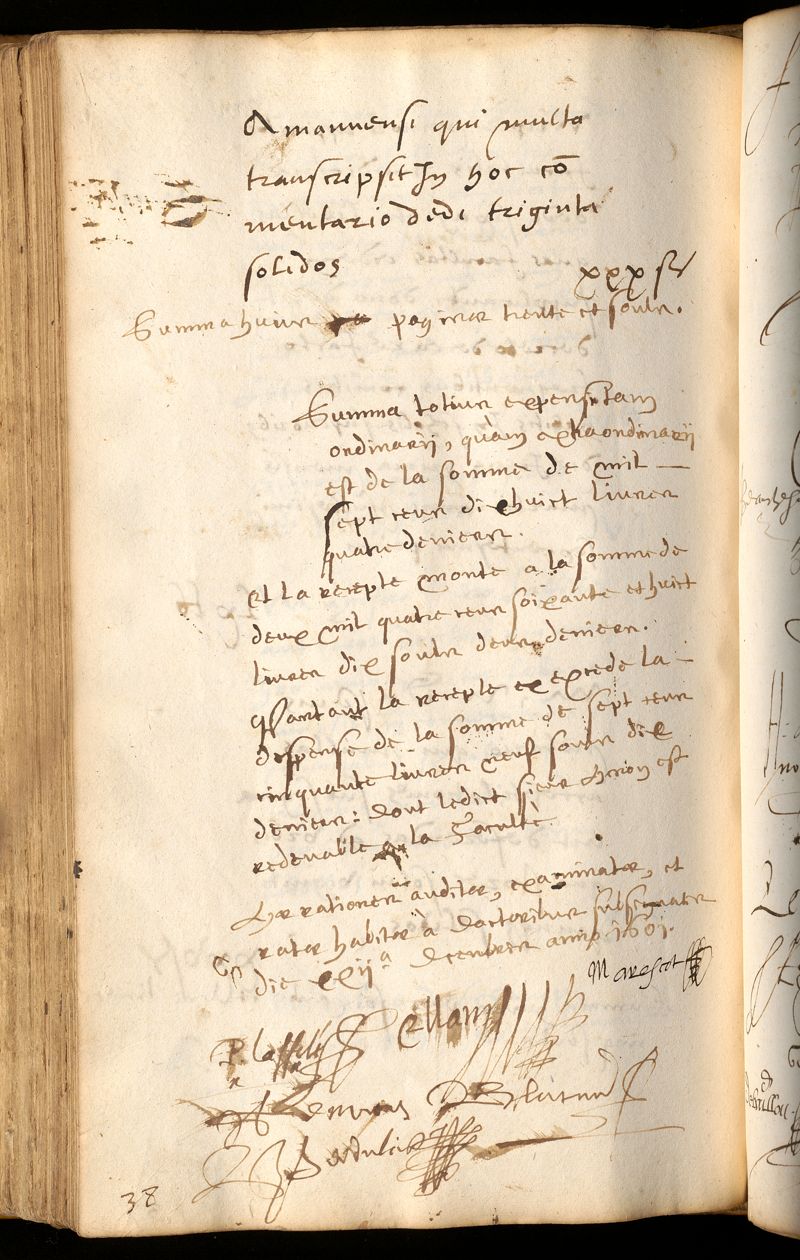 Amanuensi qui multa
transcripsit In hoc cō
mentario dedi triginta
solidos
xxx sʳ
Summa huius paginae trente et soulz.
Summa totius expensae tam
ordinarij, quàm extraordinarij
est de la somme de mil —
sept cens dixhuict livres
quatre deniers.
et la recepte monte a la somme de
deux mil quatre cens soixante et huict
livres dix soulz deux deniers.
Partant la recepte excede la —
despense de la somme de sept cens
cinquante livres neuf soulz dix
deniers: dont ledict sieur Heron est
redevable a la Faculté.
Hae rationes auditae, examinatae, et
ratae habitae à doctoribus subsignatis
die xxijª decembris anno 1601.
Marescot
P. Laffilé
Cellam
38